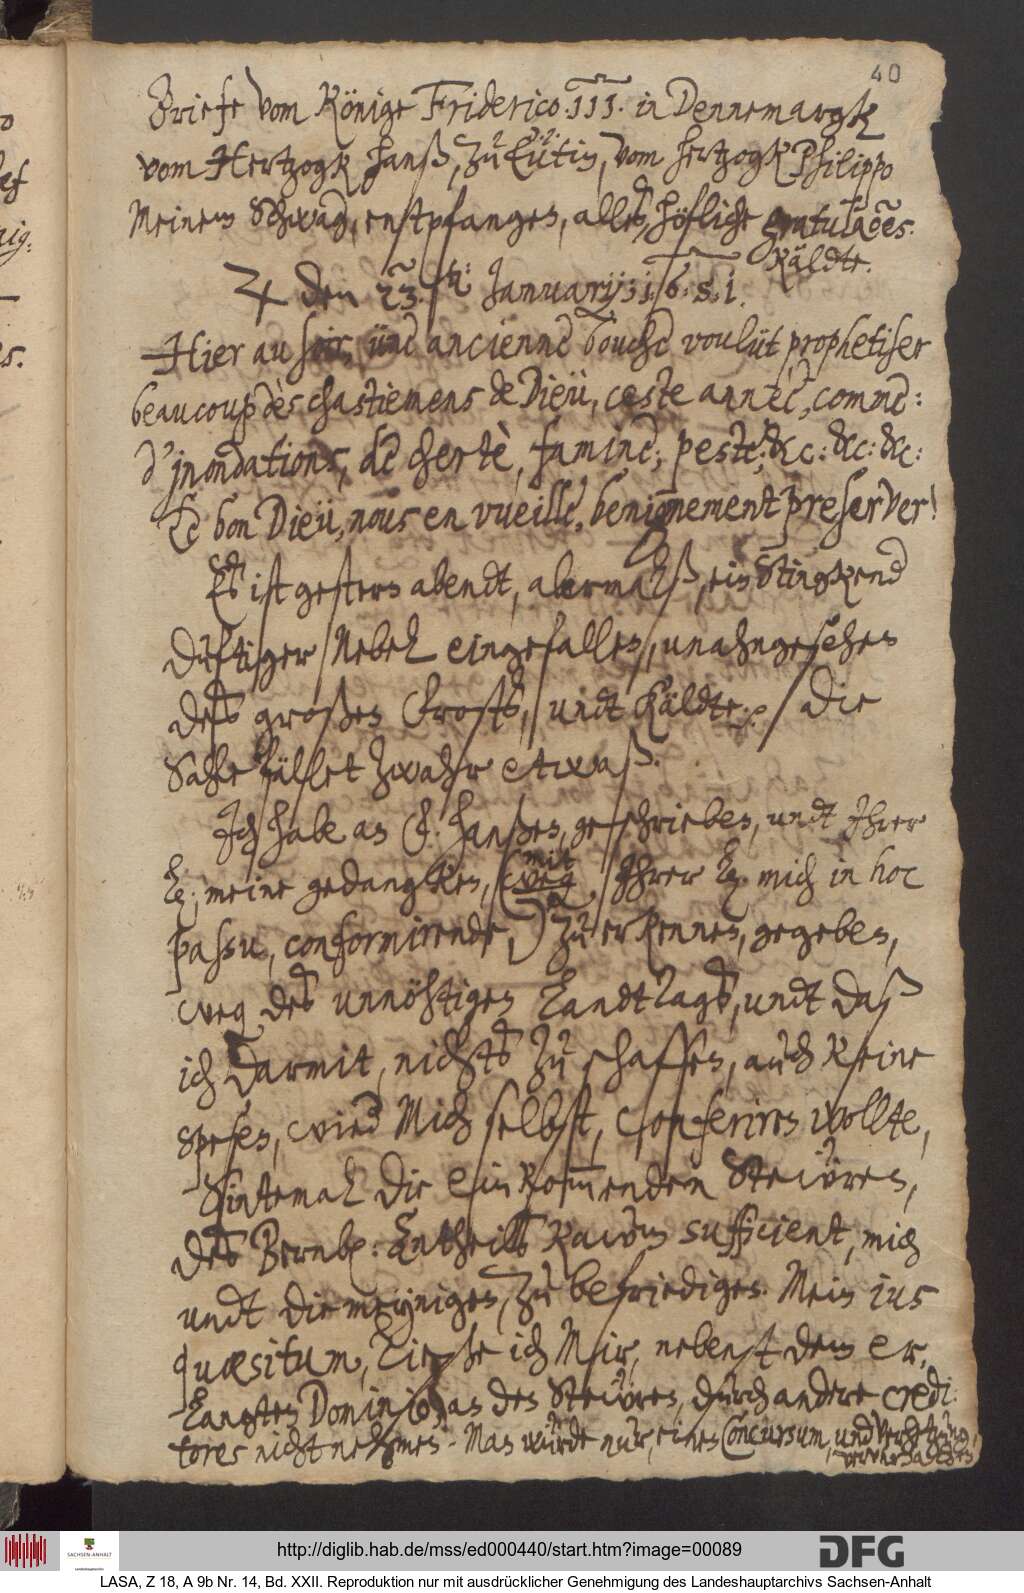 40
Briefe vom Könige Friderico. III. in Dennemargk
vom Hertzogk Hanß, zu Eutin, vom hertzogk Philippo
Meinem Schwag, entpfangen, alles höfliche gratulat͠es.
Käldte.
♃ den 23.ten: Januarij: 1. 6. 5. 1.
Hier au soir, üne ancienne bouche voulüt, prophetiser
beaucoup dès chastiemens de Dieü, ceste anneè, comme:
d'jnondations, de chertè, famine, peste, &c: &c: &c:
Le bon Dieü, nous en vueille, benignement preserver!
Es ist gestern abendt, abermalß, ein Stingkend
düftiger Nebel eingefallen, unahngesehen
deß großen Frosts, undt Käldte. / Die
Sahle fället zwahr etwaß.
Ich habe an F. Hanßen, geschrieben, undt Ihrer
L. meine gedangken, (mit
Ihrer L. mich in hoc
passu, conformirende,) zu erkennen, gegeben,
weg. deß unnöhtigen Landtags, undt daß
ich darmit, nichts zu schaffen, auch keine
spesen, wied Mich selbst, conferiren wollte,
Sintemal die einkom̅enden Steüren,
deß Bernb. Antheilß kaum sufficient, mich
undt die meynigen, zu befriedigen. Mein ius
quæsitum, ließe ich Mir, nebenst dem er-
langten Dominio, an den Steüren, durch andere credi-
tores nicht nehmen. Man würde nur, einen Concursum, und
verursachen
http://diglib.hab.de/mss/ed000440/start.htm?image=00089
DFG
SACHSEN-ANHALT
LASA, Z 18, A 9b Nr. 14, Bd. XXII. Reproduktion nur mit ausdrücklicher Genehmigung des Landeshauptarchivs Sachsen-Anhalt